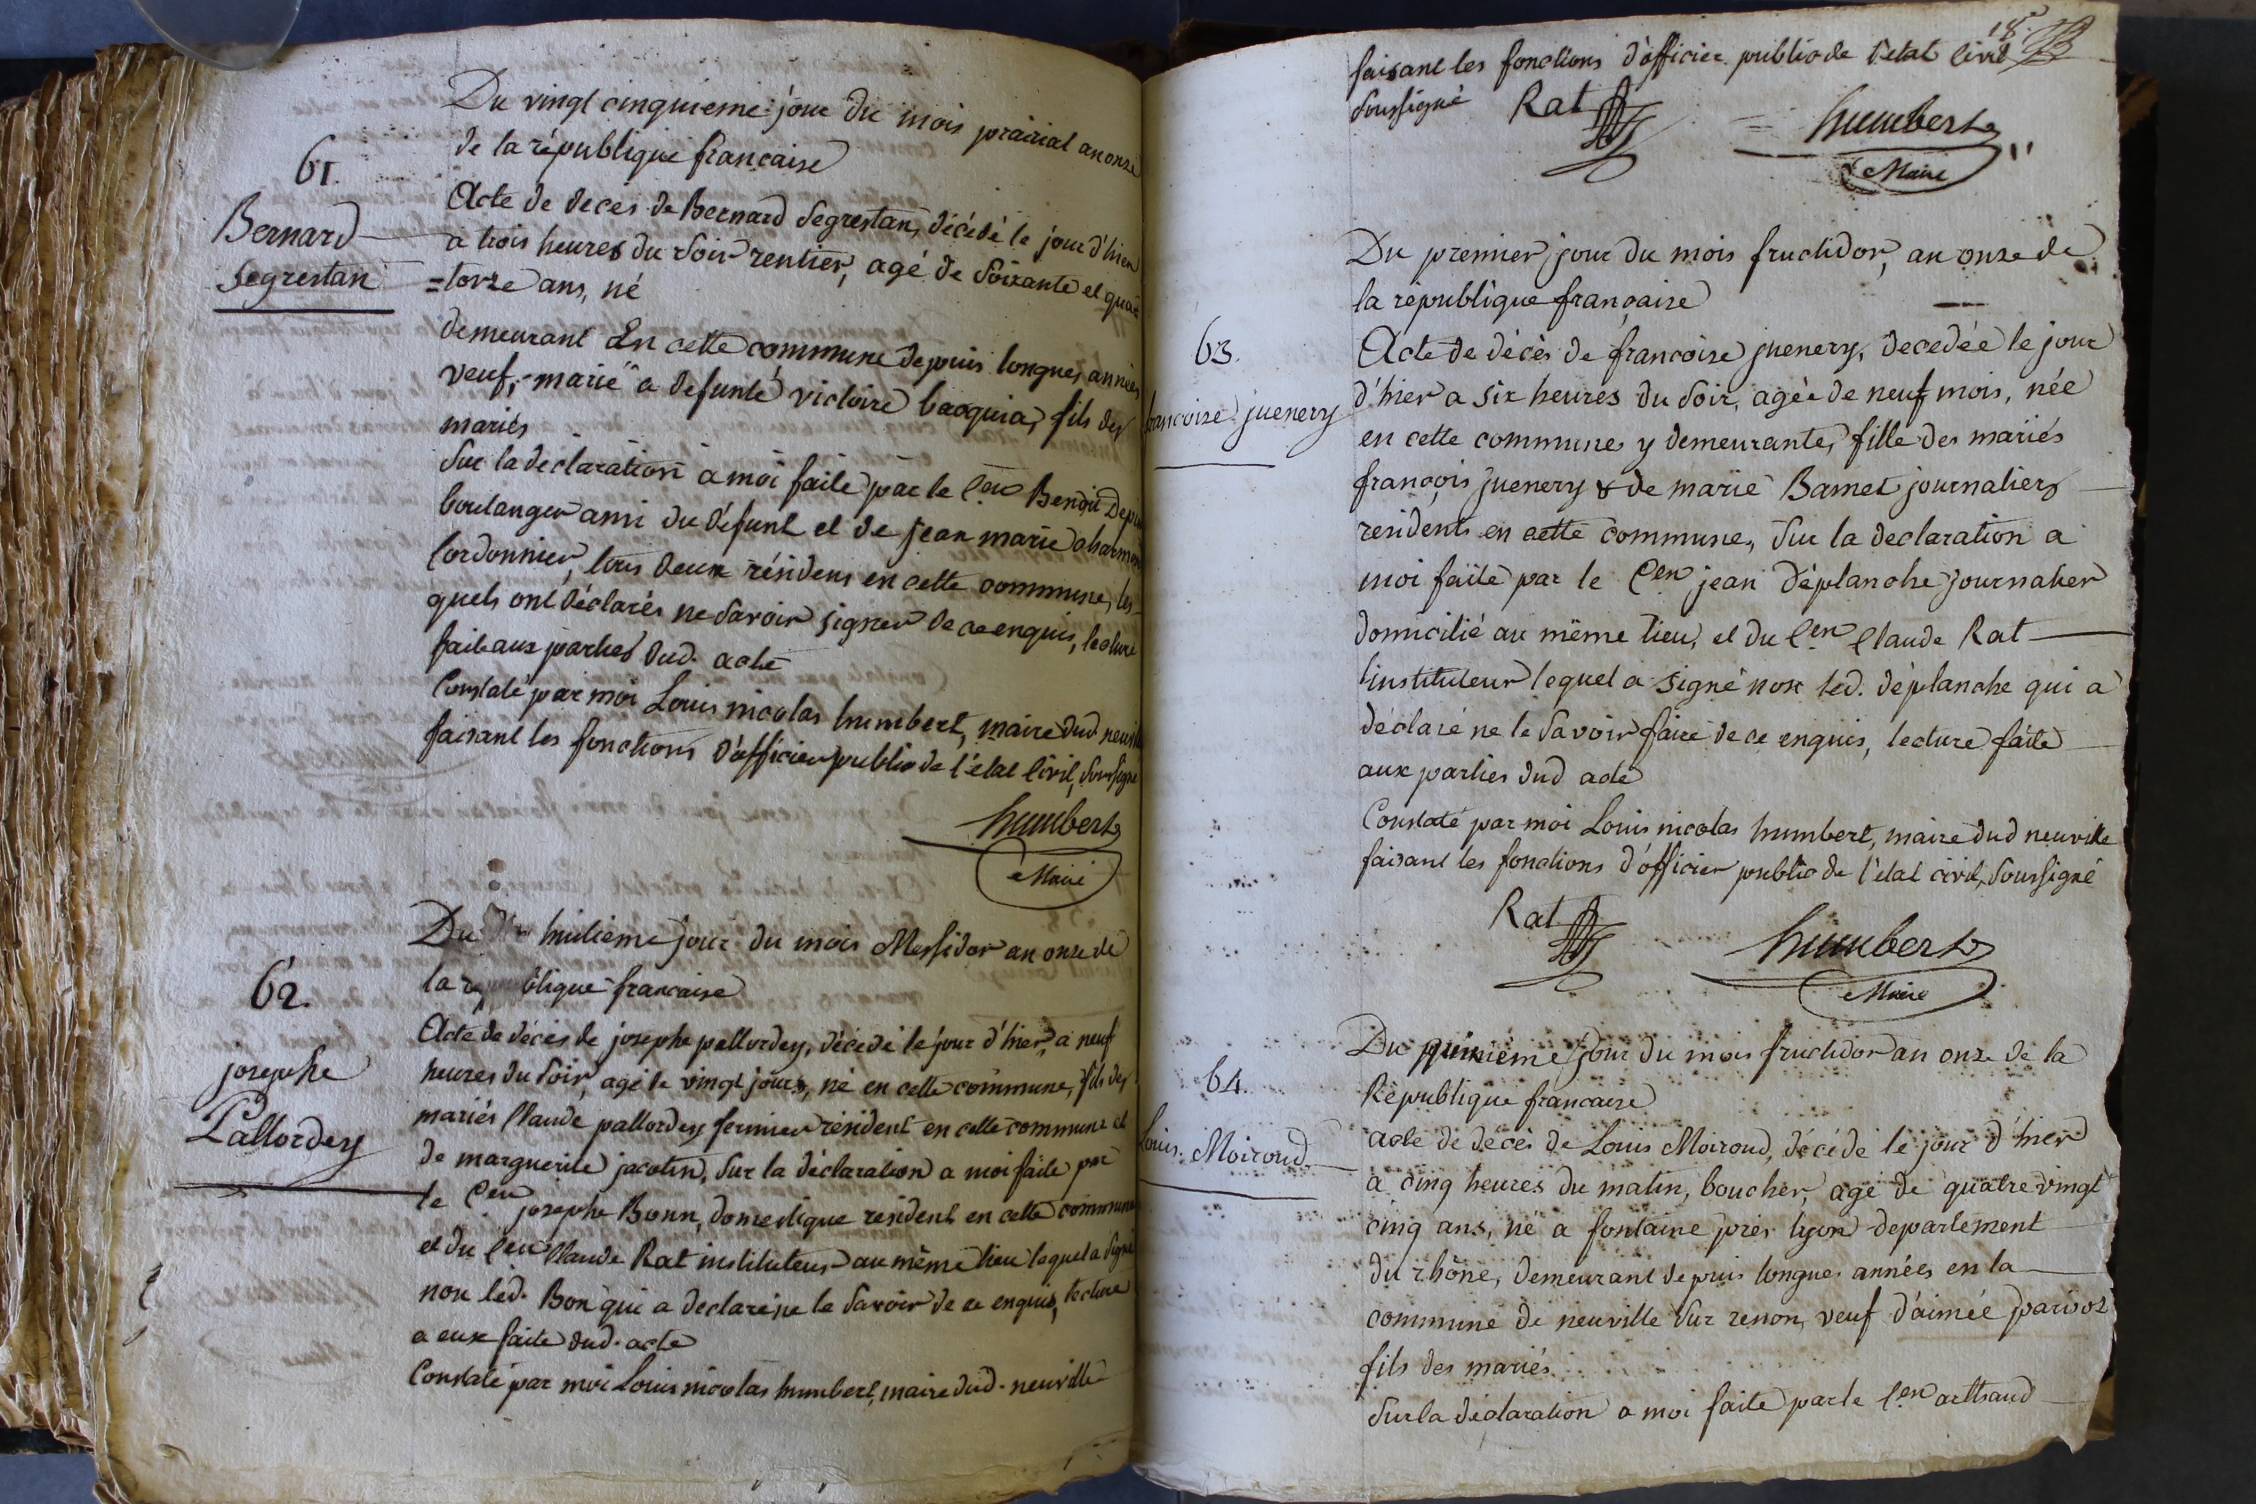 Du vingt cinquieme jour du mois prairial an onze
de la république francaise
61.
Bernard
Segrestan
Acte de decès de Bernard Segrestan, décédé le jour d'hier
a trois heures du soir rentier, agé de soixante et qua=
=torze ans, né
demeurant En cette commune depuis longues années
veuf, marié a defunte victoire bacquia, fils des
mariés
Sur la déclaration a moi faite par le Cen Benoit
boulanger ami du défunt et de jean marie
Cordonnier, tous deux résidens en cette commune, les-
quels ont déclarés ne savoir signer de ce enquis, lecture
faite aux parties dud. acte
Constaté par moi Louis nicolas humbert, maire dud.
faisant les fonctions d'officier public de l'état civil, soussigné
humbert
Maire
Du huitieme jour du mois Messidor an onze de
la république francaise
62.
josephe
Pallordey
Acte de décès de josephe pallordey, décédé le jour d'hier, a neuf
heures du soir, agé de vingt jours, né en cette commune, fils des
mariés Claude pallordey fermier résident en cette commune et
de marguerite jacotin, sur la déclaration a moi faite par
le Cen josephe Bonn, domestique resident en cette commune
et du Cen Claude Rat instituteur au même lieu lequel a signé
non led. Bon qui a declaré ne le savoir de ce enquis, lecture
a eux faite dud. acte
Constaté par moi Louis nicolas humbert, maire dud. neuville
18.
faisant les fonctions d'officier public de l'état civil
soussigné Rat humbert
Maire
Du premier jour du mois fructidor, an onze de
la république françaize
63.
francoise juenery
Acte de décès de francoise juenery, decedée le jour
d'hier a six heures du soir, agée de neuf mois, née
en cette commune y demeurante, fille des mariés
françois juenery & de marie Bamet journaliers
residents en cette commune, sur la declaration a
moi faite par le Cen jean déplanche journalier
domicilié au même lieu, et du Cen Claude Rat
instituteur lequel a signé non led. déplanche qui a
déclaré ne le savoir faire de ce enquis, lecture faite
aux parties dud acte
Constaté par moi Louis nicolas humbert, maire dud neuville
faisant les fonctions d'officier public de l'état civil, soussigné
Rat humbert
Maire
Du jour du mois fructidor an onze de la
République francaise
64.
Louis Moiroud
acte de décès de Louis Moiroud, décédé le jour d'hier
a cinq heures du matin, boucher, agé de quatre vingt
cinq ans, né a fontaine près lyon departement
du rhône, demeurant depuis longues années en la
commune de neuville sur renon, veuf d'aimée
fils des mariés
Sur la déclaration a moi faite par le Cen arthaud